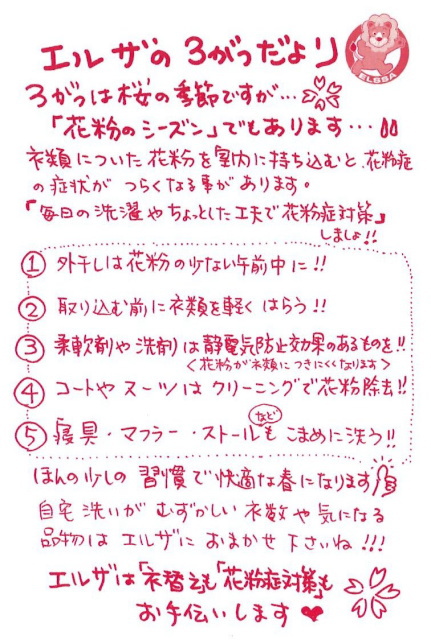 エルザの3がつだより
ELSSA
3がつは桜の季節ですが…
「花粉のシーズン」でもあります…
衣類についた花粉を室内に持ち込むと、花粉症
の症状がつらくなる事があります。
「毎日の洗濯やちょっとした工夫で花粉症対策」
しましょ!!
① 外干しは花粉の少ない午前中に!!
② 取り込む前に衣類を軽くはらう!!
③ 柔軟剤や洗剤は静電気防止効果のあるものを!!
<花粉が衣類につきにくくなります>
④ コートやスーツはクリーニングで花粉除去!!
⑤ 寝具・マフラー・ストールなどもこまめに洗う!!
ほんの少しの習慣で快適な春になります
自宅洗いがむずかしい衣数や気になる
品物はエルザにおまかせ下さいね!!!
エルザは「衣替え」も「花粉症対策」も
お手伝いします♥